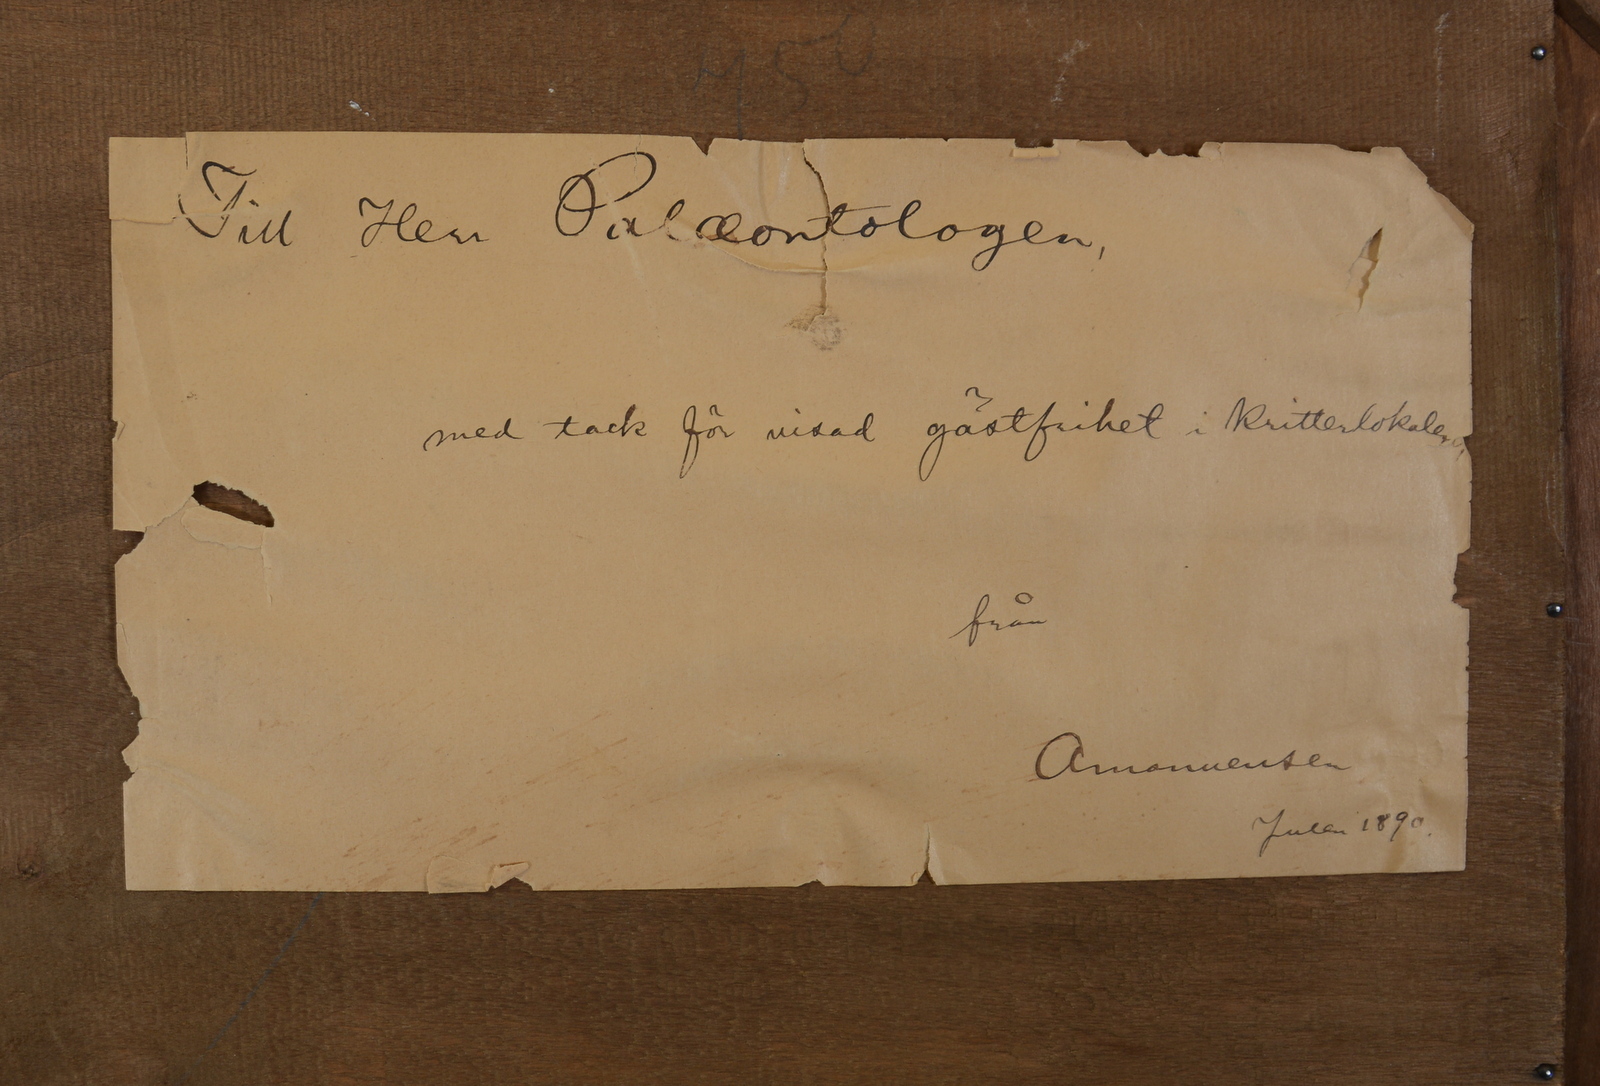 Till Herr Palæontologen,
med tack för visad gästfrihet i kritterlokalen,
från
Amanuensen
Julen 1890.